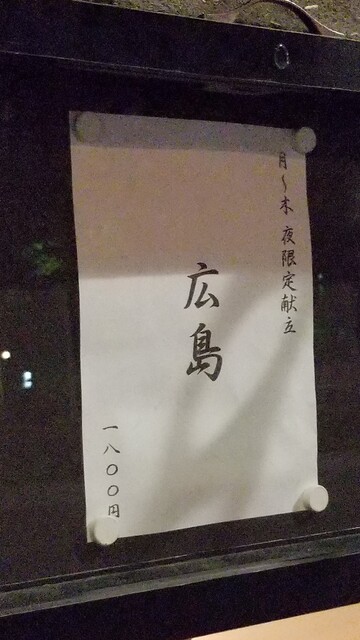 月〜木 夜限定献立
広島
一八〇〇円